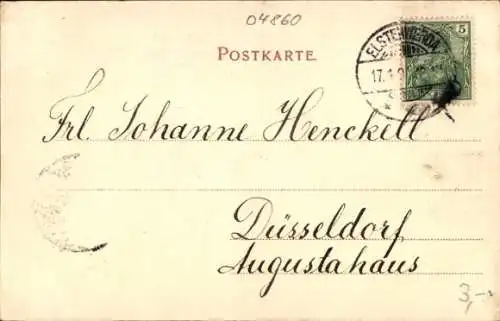 04860
POSTKARTE
5
ELSTERWERDA
17.1
Frl. Johanne Henckell
Düsseldorf
Augustahaus
3,-